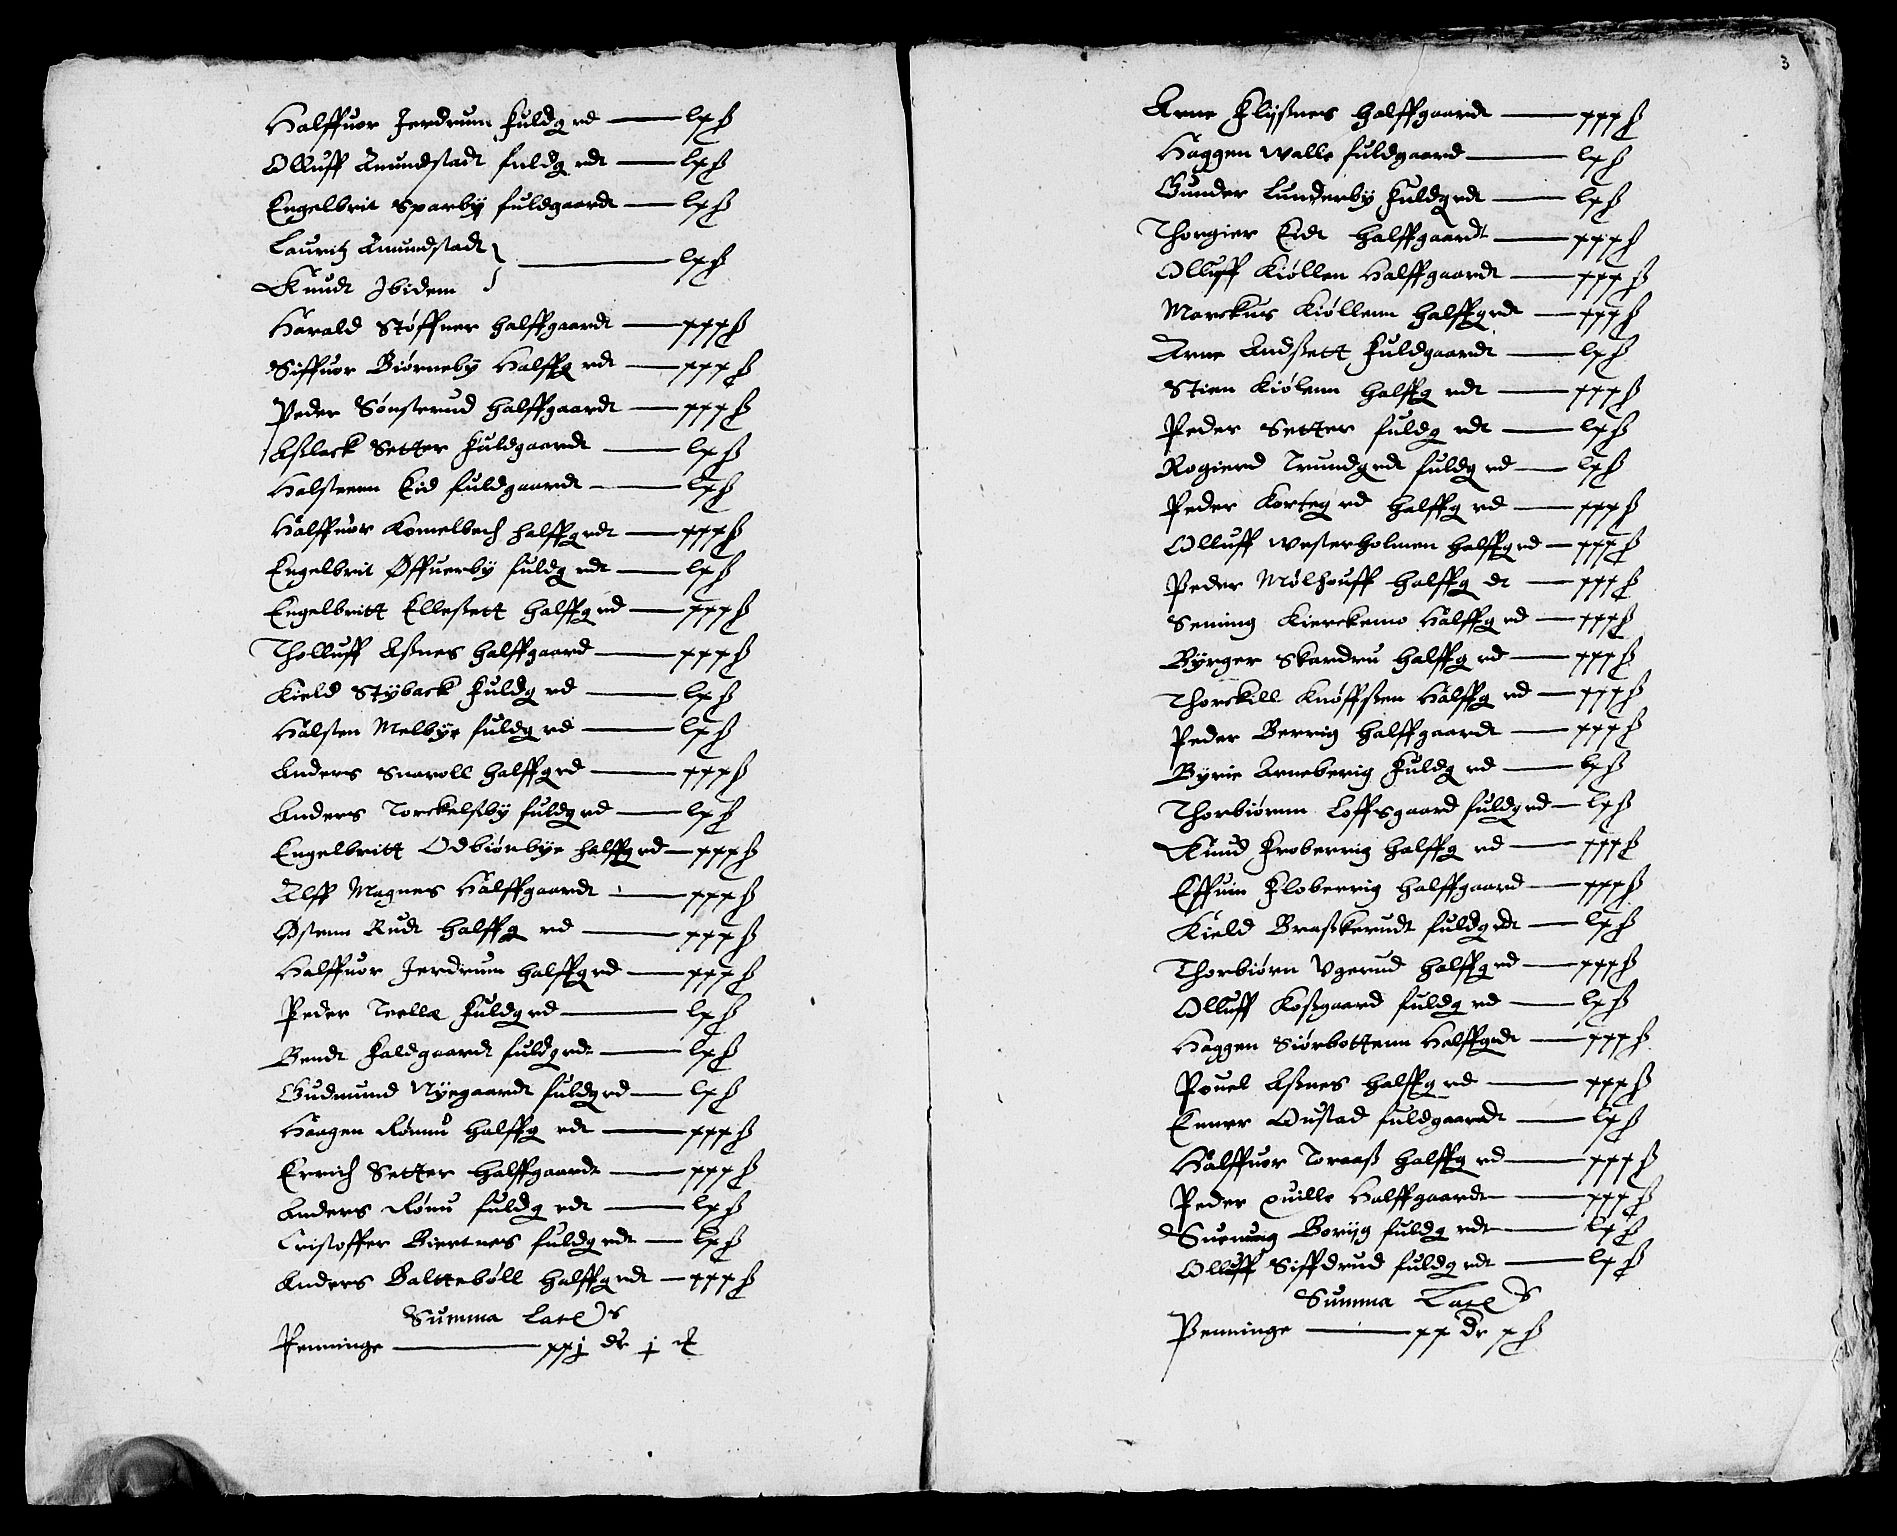 Halffuor Jerdrum fuldg rd — lxß
Olluff Amundstadt fuldg rdt — lxß
Engelbrit Sparby fuldgaardt — lxß
Lauritz Amundstadt
Knudt Ibidem } — lxß
Harald Støffner halffgaardt — xxxß
Siffuor Biørneby Halffg rdt — xxxß
Peder Sønsterud halffgaardt — xxxß
Asslack Setter fuldgaardt — lxß
Halstenn Eid fuldgaardt — lxß
Halffuor Komelbech halffgrdt — xxxß
Engelbrit Øffuerby fuldg rdt — lxß
Engelbritt Ellessett halffg rd — xxxß
Tholluff Assnes halffgaard — xxxß
Kield Stÿback fuldg rd — lxß
Halsten Melbye fuldg rd — lxß
Anders Snaroll halffgrd — xxxß
Anders Torckelssby fuldgrd — lxß
Engelbritt Odbiønbye halffgrd — xxxß
Alff Magnes Halffgaardt — xxxß
Østenn Rudt halffg rd — xxxß
Halffuor Jerdrum halffgrd — xxxß
Peder Teelle fuldgrd — lxß
Bendt Faldgaardt fuldgrdt — lxß
Gudmund Nyegaardt fuldgrd — lxß
Haagen Rønnu halffg rdt — xxxß
Errich Setter halffgaardt — xxxß
Anders Rønu fuldg rdt — lxß
Cristoffer Biertnes fuldgrdt — lxß
Anders Balttebøll halffgrdt — xxxß
Summa Late)s
Penninge — xxj dr j
3
Arne Flyssnes halffgaardt — xxxß
Haggen Walle fuldgaard — lxß
Gunder Lunderby fuldgrdt — lxß
Thorgier Eidt halffgaardt — xxxß
Olluff Kiøllen Halffgaardt — xxxß
Marckus Kiøllenn halffgrdt — xxxß
Arne Andssett fuldgaardt — lxß
Stien Kiølenn halffg rdt — xxxß
Peder Setter fuldg rdt — lxß
Rogierd Trundgrdt fuldg rd — lxß
Peder Korteg rd halffg rd — xxxß
Olluff Westerholmen halffgrd — xxxß
Peder Mølhouff halffg dt — xxxß
Sening Kierckemo Halffg rd — xxxß
Byrger Skardru halffg rd — xxxß
Thorckill Knøffssen Halffg rd — xxxß
Peder Berrig halffgaardt — xxxß
Byrie Arneberig fuldg rd — lxß
Thorbiørnn Loffsgaard fuldgrd — lxß
Knud Froberrig halffg rd — xxxß
Effuin Floberrig halffgaard — xxxß
Kield Brasskerudt fuldgrdt — lxß
Thorbiørn Vgerud halffgrd — xxxß
Olluff Kossgaard fuldg rd — lxß
Haggen Siørbottenn Halffgrdt — xxxß
Pouel Assnes halffg rd — xxxß
Enner Oustad fuldgaardt — lxß
Halffuor Toraass halffg rd — xxxß
Peder quille Halffgaardt — xxxß
Suenung Boryg fuldg rdt — lxß
Olluff Siffdrud fuldg rdt — lxß
Summa Late)s
Penninge — xx dr xß